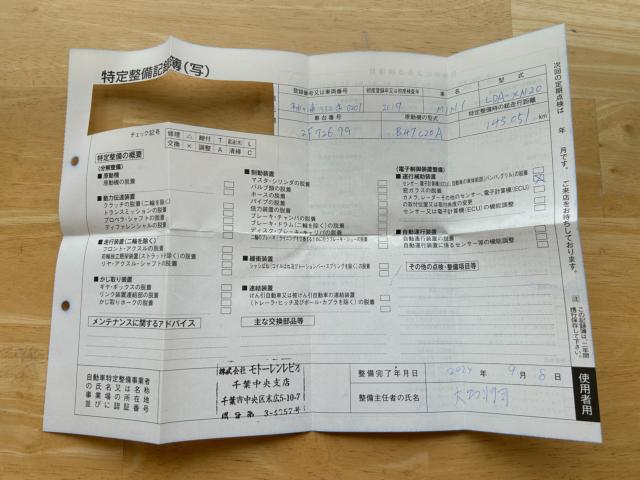 特定整備記録簿(写)
登録番号又は車両番号
初度登録年又は初度検査年
車名
型式
2019
MINI
LDA-XN20
車台番号
原動機の型式
特定整備時の総走行距離
2F72699
B47C20A
145,051 km
チェック記号
修理 △ 締付 T L
交換 × 調整 A 清掃 C
特定整備の概要
(分解整備)
■原動機
原動機の脱着
■動力伝達装置
クラッチの脱着(二輪を除く)
トランスミッションの脱着
プロペラ・シャフトの脱着
ディファレンシャルの脱着
■走行装置(二輪を除く)
フロント・アクスルの脱着
前輪独立懸架装置(ストラットを除く)の脱着
リヤ・アクスル・シャフトの脱着
■かじ取り装置
ギヤ・ボックスの脱着
リンク装置連結部の脱着
かじ取りホークの脱着
■制動装置
マスタ・シリンダの脱着
バルブ類の脱着
ホースの脱着
パイプの脱着
倍力装置の脱着
ブレーキ・チャンバの脱着
ブレーキ・ドラム(二輪を除く)の脱着
ディスク・ブレーキ・キャリパの脱着
二輪のブレーキ・ライニングを交換するために行うブレーキ・シューの脱着
■緩衝装置
シャシばね(コイルばね及びトーションバー・スプリングを除く)の脱着
■連結装置
けん引自動車又は被けん引自動車の連結装置
(トレーラ・ヒッチ及びボール・カプラを除く)の脱着
(電子制御装置整備)
■運行補助装置
センサー、電子計算機(ECU)、自動車の車体前部(バンパ、グリル)の脱着
窓ガラスの脱着
カメラ、レーダーその他のセンサー、電子計算機(ECU)
の取付位置又は取付角度の変更
センサー又は電子計算機(ECU)の機能調整
■自動運行装置
自動運行装置の脱着
自動運行装置に係るセンサー等の機能調整
その他の点検・整備項目等
メンテナンスに関するアドバイス
主な交換部品等
自動車特定整備事業者
の氏名又は名称
事業場の所在地
並びに認証番号
株式会社 モトーレンレピオ
千葉中央支店
千葉市中央区末広5-10-7
整備完了年月日
2024 年 9 月 8 日
整備主任者の氏名
次回の定期点検は 年 月です。ご来店をお待ちしております。
注 この記録簿は、二年間携行保存して下さい。
使用者用